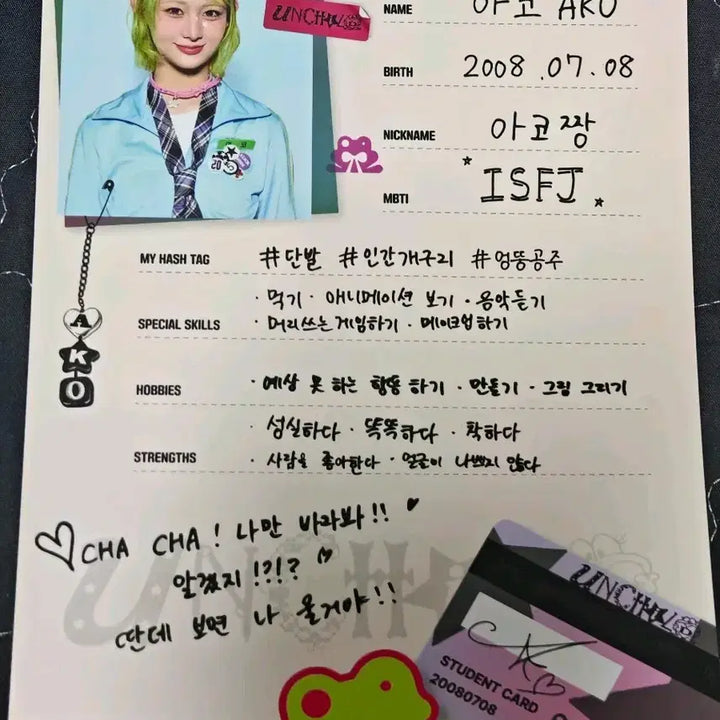 UNCHILD
NAME 아코 AKO
BIRTH 2008.07.08
NICKNAME 아코짱
MBTI ISFJ
MY HASH TAG #단발 #인간개구리 #엉뚱공주
20
SPECIAL SKILLS · 먹기 · 애니메이션 보기 · 음악듣기
· 머리쓰는게임하기 · 메이크업하기
A
K
O
HOBBIES · 예상 못 하는 행동 하기 · 만들기 · 그림 그리기
STRENGTHS · 성실하다 · 똑똑하다 · 착하다
· 사람을 좋아한다 · 얼굴이 나쁘지 않다
CHA CHA! 나만 바라봐!!
알겠지!?!?
딴데 보면 나 울거야!!
UNCHILD
UNCHILD
STUDENT CARD
20080708